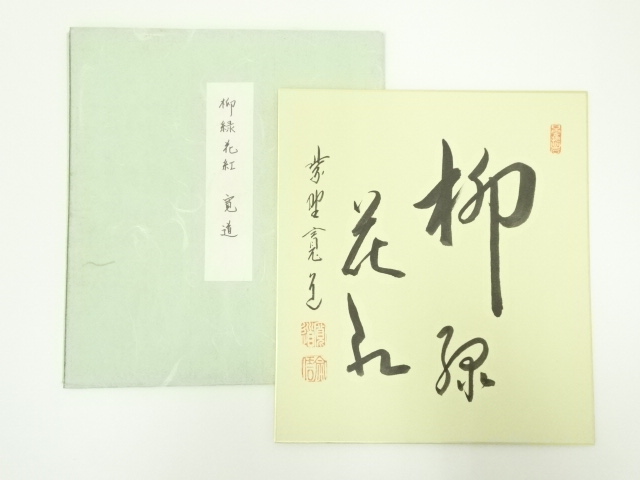 柳緑
花紅
紫野寛道
柳緑花紅 寛道